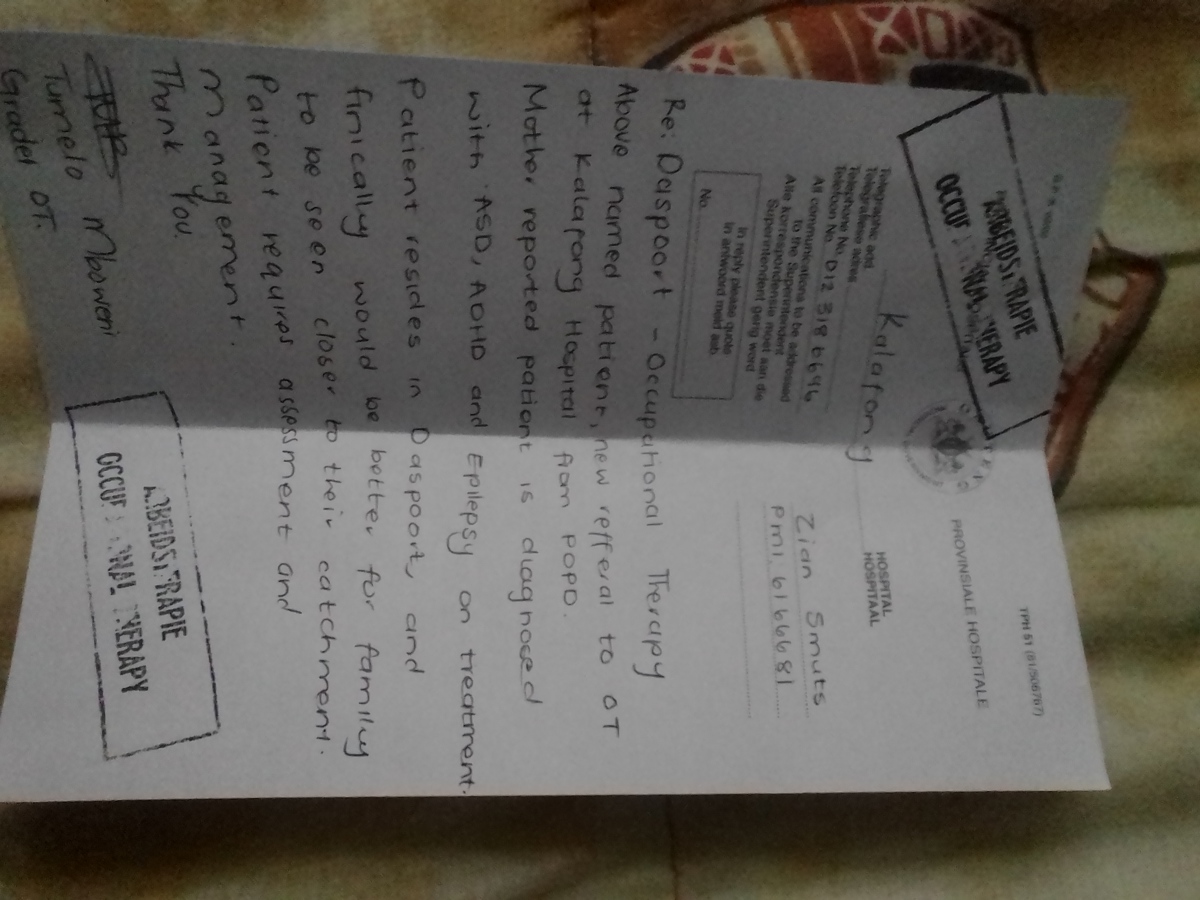 TPH 51 (81/506767)
PROVINSIALE HOSPITALE
ARBEIDSTERAPIE
OCCUPATIONAL THERAPY
Kalafong
HOSPITAL
HOSPITAAL
Telegraphic add
Telegrafiese adres
Telephone No.
Telefoon No. 012 318 6696
All communications to be addressed
to the Superintendent
Alle korrespondensie moet aan die
Superintendent gerig word
Zian Smuts
Pmi: 6166681
In reply please quote
in antwoord meld asb
No.
Re: Dasport - Occupational Therapy
Above named patient, new refferal to OT
at Kalafong Hospital from POPD.
Mother reported patient is diagnosed
with ASD, ADHD and Epilepsy on treatment.
Patient resides in Daspoort, and
finically would be better for family
to be seen closer to their catchment.
Patient requires assessment and
management.
Thank you.
Tumelo Mboweni
Grade1 OT.
ARBEIDSTERAPIE
OCCUPATIONAL THERAPY